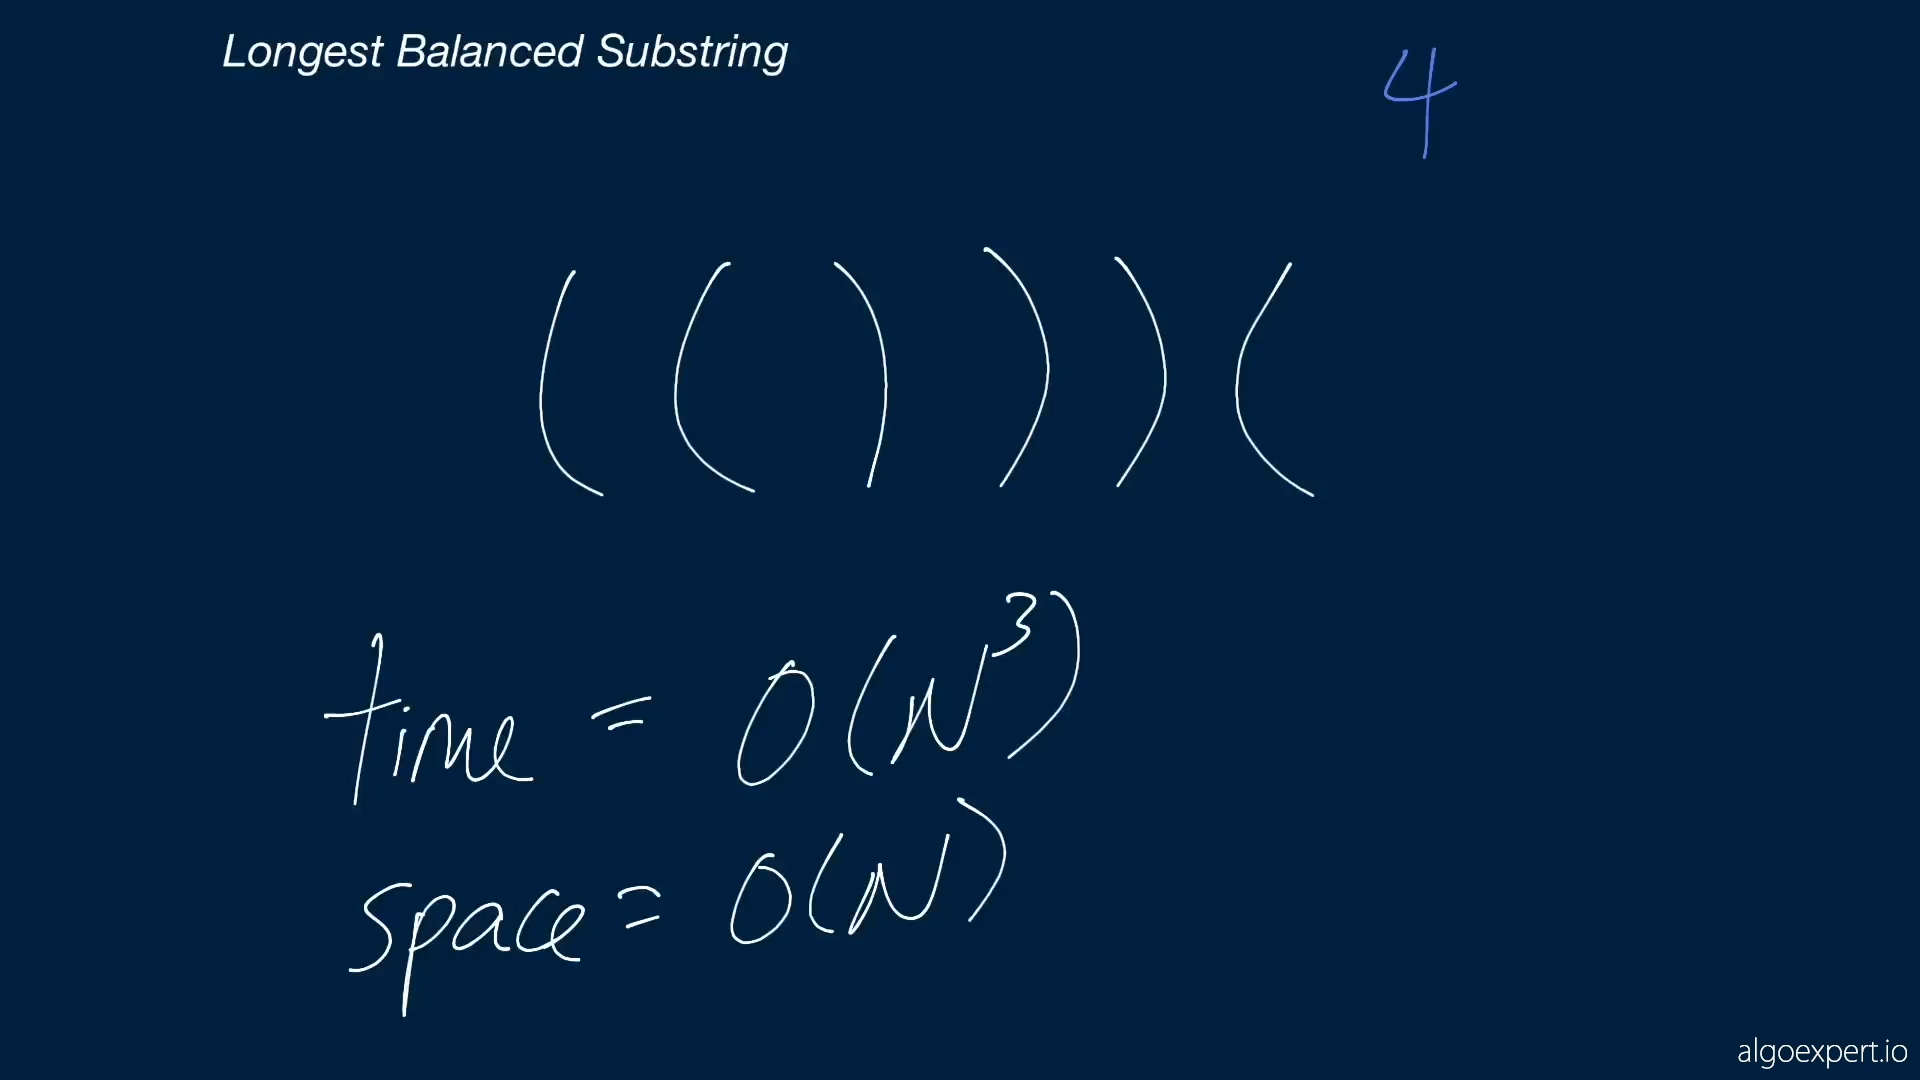 Longest Balanced Substring
4
( ( ) ) ) (
time = O(N³)
space = O(N)
algoexpert.io